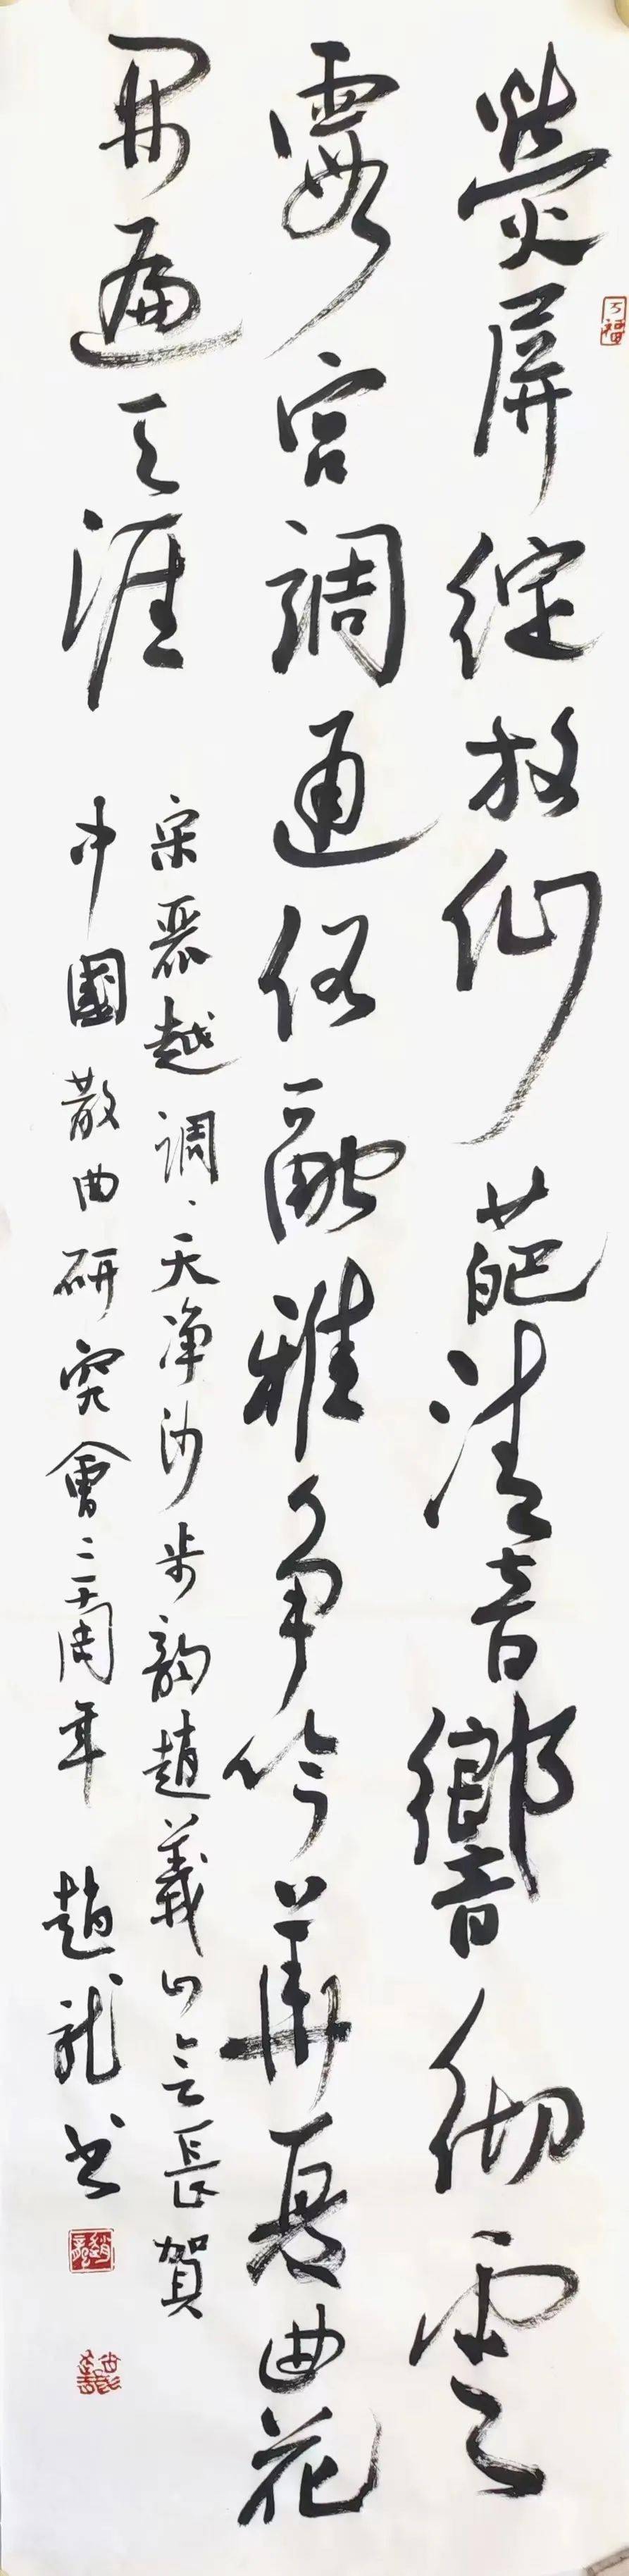 熒屏綻放仙葩清音響徹雲
霞宮調通俗融雅争吟華夏曲花
開遍天涯
宋丽越調、天净沙步韵趙義山会長賀
中國散曲研究會三十周年 趙龍书